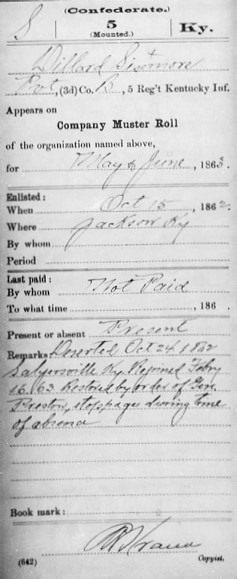 (Confederate.)
S 5 Ky.
(Mounted.)
Dillard Sizemore
Pvt, (3d) Co. B, 5 Reg't Kentucky Inf.
Appears on
Company Muster Roll
of the organization named above,
for May & June, 1863.
Enlisted:
When Oct 15, 1862
Where Jackson Ky
By whom
Period
Last paid:
By whom Not Paid
To what time , 186 .
Present or absent Present
Remarks: Deserted Oct 24, 1862
Salyersville Ky. Rejoined Febry
16, 63 Restored by order of Gen
Preston, stoppages during time
of absence
Book mark:
(642) Copyist.